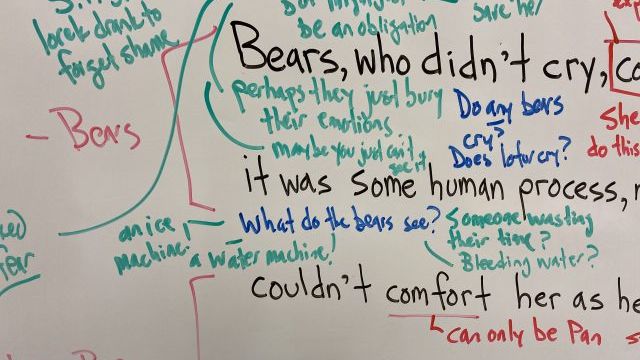 be an obligation
save her
lorek drank to
forget shame
Bears, who didn't cry, co
perhaps they just bury
their emotions
maybe you just can't
see it
Do any bears
cry?
Does Iofur cry?
She
do this
- Bears
it was some human process,
an ice
machine!
What do the bears see?
a water machine!
Someone wasting
their time?
Bleeding water?
couldn't comfort her as he
can only be Pan